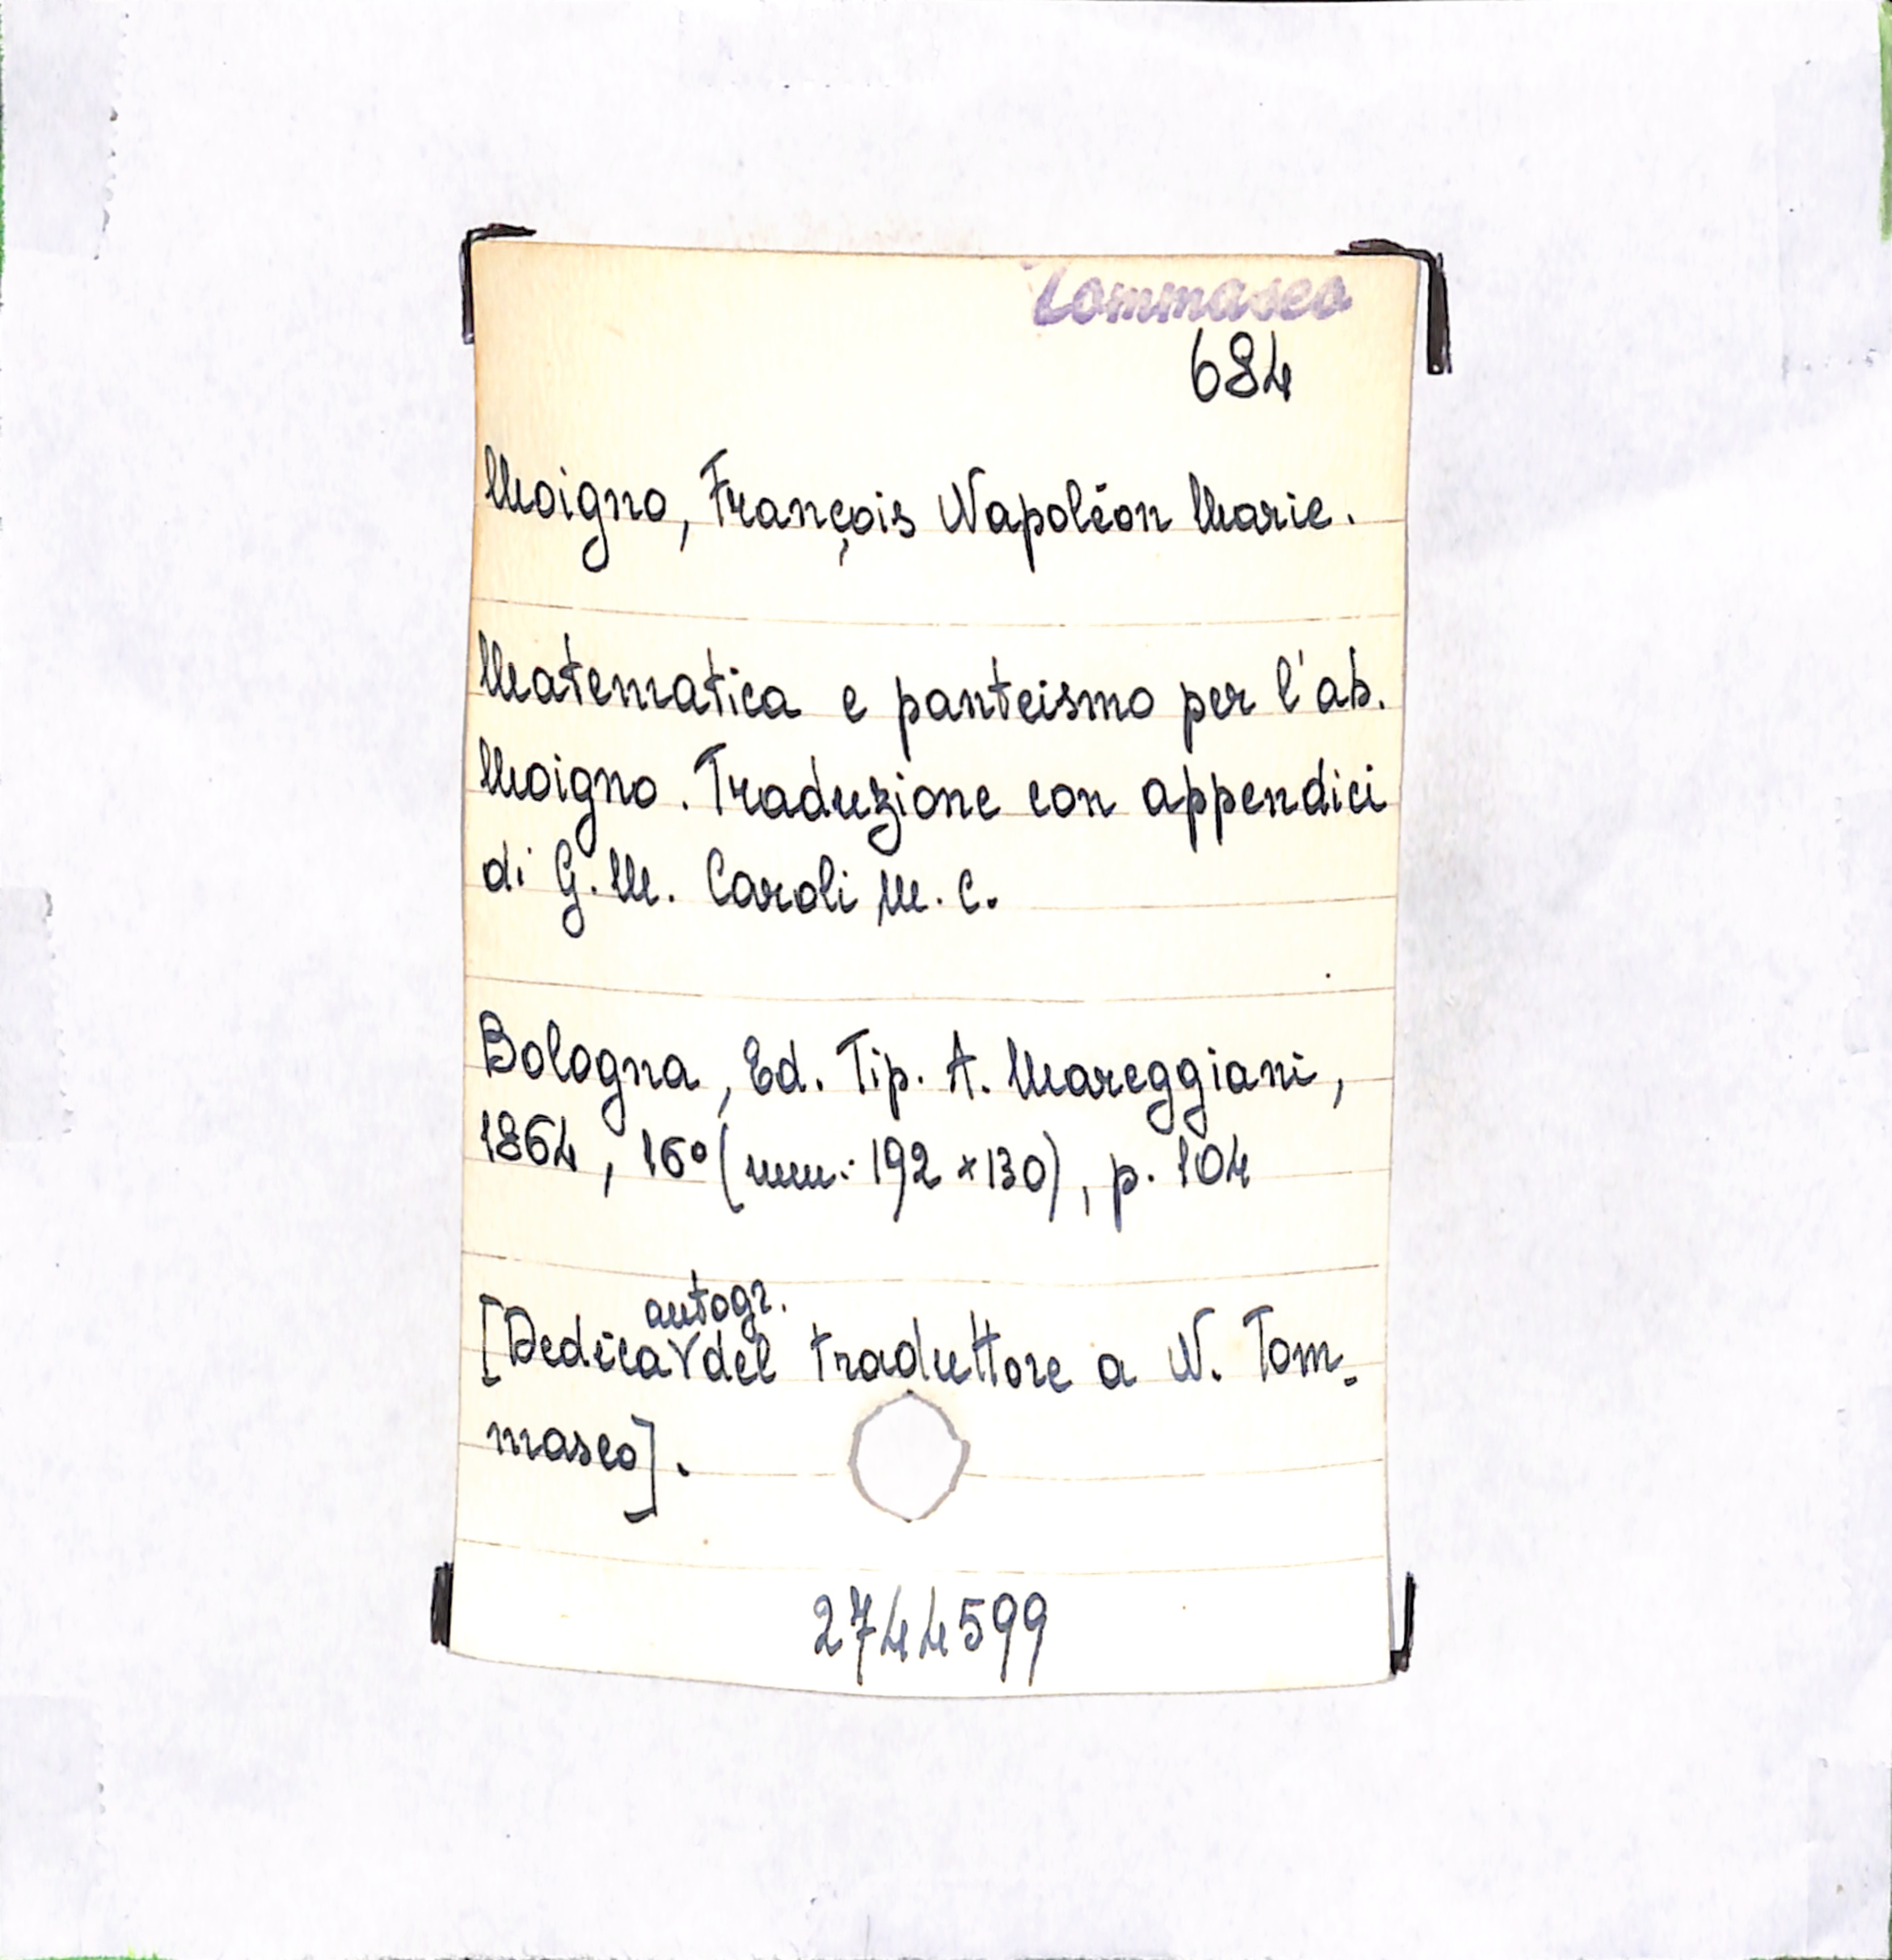 Tommaseo
684
Moigno, François Napoléon Marie.
Matematica e panteismo per l'ab.
Moigno. Traduzione con appendici
di G. M. Caroli M. C.
Bologna, Ed. Tip. A. Mareggiani,
1864, 16° (mm: 192 × 130), p. 104
autogr.
[Dedica del traduttore a N. Tom-
maseo].
2744599